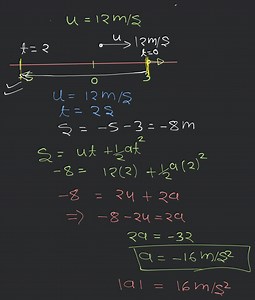 u = 12m/s
t = 2
u
12m/s
t=0
0
3
u = 12m/s
t = 2s
s = -5-3 = -8m
s = ut + 1/2 at²
-8 = 12(2) + 1/2 a(2)²
-8 = 24 + 2a
⇒ -8-24 = 2a
2a = -32
a = -16m/s²
|a| = 16m/s²